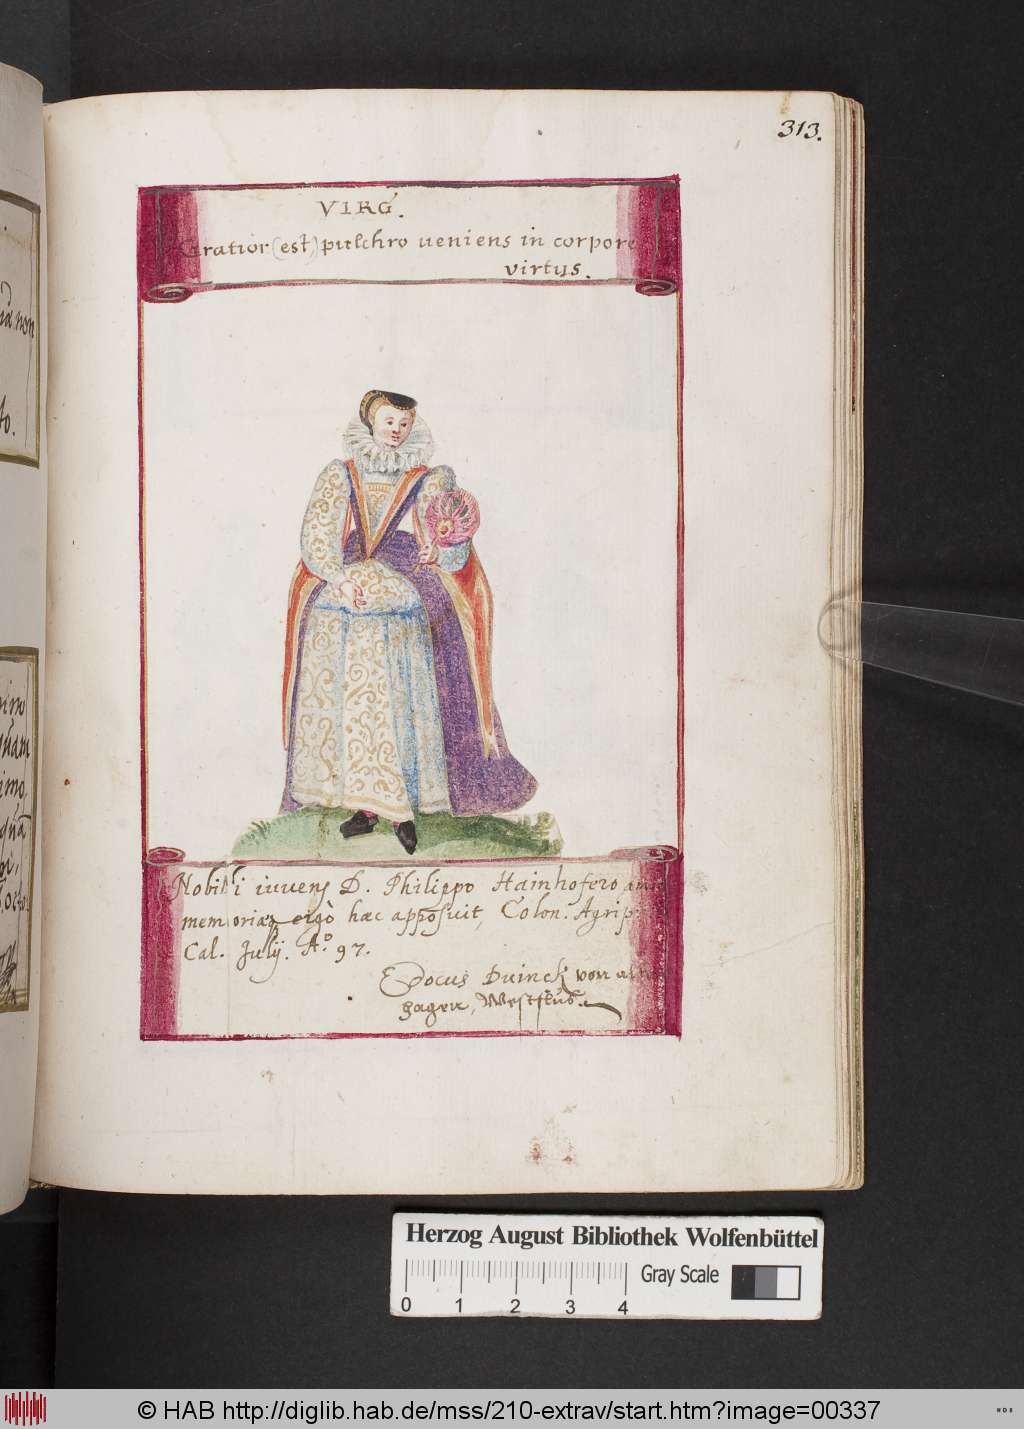 313.
VIRG.
Gratior (est) pulchro ueniens in corpore
virtus.
Nobili iuueni D. Philippo Hainhofero
memoriæ ergò hæc apposuit, Colon. Agrip.
Cal. Julij. Aº. 97.
Jodocus Duinck von
hagen, Westfus.
ia non
to.
quam
imo,
Herzog August Bibliothek Wolfenbüttel
Gray Scale
0 1 2 3 4
© HAB http://diglib.hab.de/mss/210-extrav/start.htm?image=00337